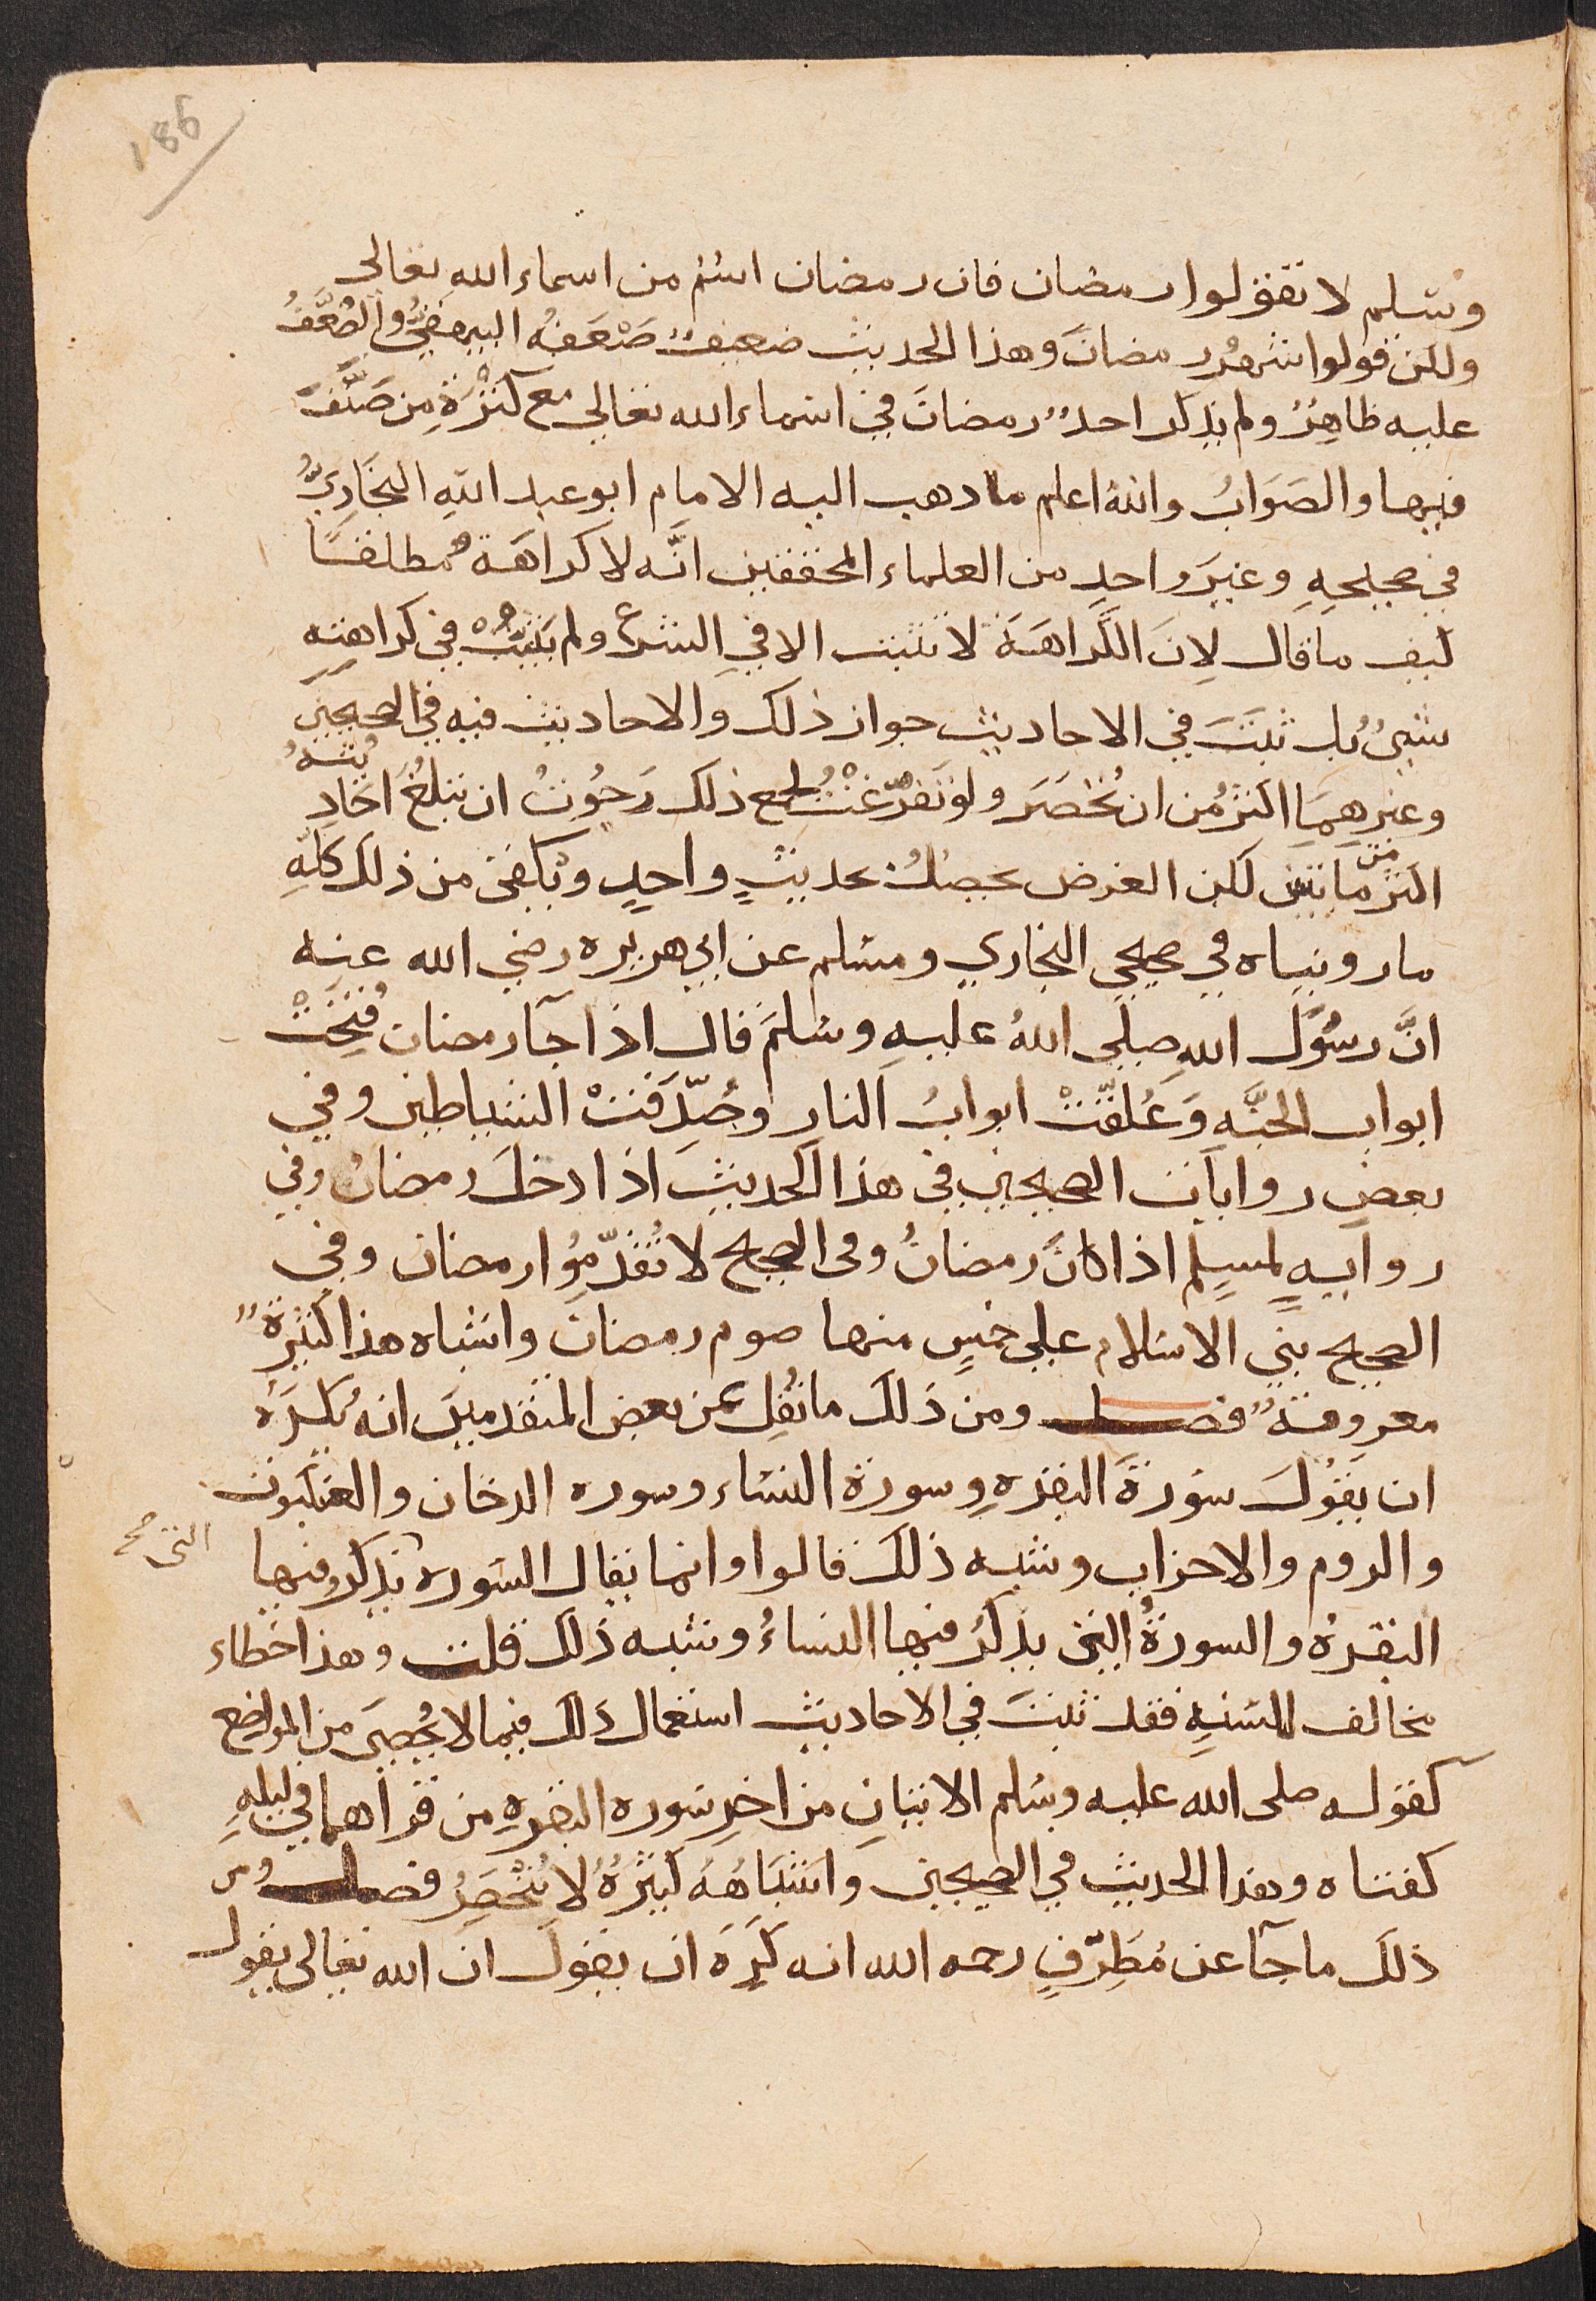 186
وسلم لا تقولوا رمضان فان رمضان اسم من اسماء الله تعالى
ولكن قولوا شهر رمضان وهذا الحديث ضعيف ضعفه البيهقي والضعف
عليه ظاهر ولم يذكر احد رمضان في اسماء الله تعالى مع كثرة من صنف
فيها والصواب والله اعلم ما ذهب اليه الامام ابو عبد الله البخاري
في صحيحه وغير واحد من العلماء المحققين انه لا كراهة مطلقا
كيف ما قال لان الكراهة لا تثبت الا في الشرع ولم يثبت في كراهته
شيء بل ثبت في الاحاديث جواز ذلك والاحاديث فيه في الصحيحين
وغيرهما اكثر من ان تحصر ولو تفرغت لجمع ذلك رجوت ان تبلغ احاديثه
اكثر من مائتين لكن الغرض يحصل بحديث واحد ويكفي من ذلك كله
ما رويناه في صحيحي البخاري ومسلم عن ابي هريره رضي الله عنه
ان رسول الله صلى الله عليه وسلم قال اذا جآ رمضان فتحت
ابواب الجنه وغلقت ابواب النار وصفدت الشياطين وفي
بعض روايات الصحيحين في هذا الحديث اذا دخل رمضان وفي
روايه لمسلم اذا كان رمضان وفى الصحيح لا تقدموا رمضان وفي
الصحيح بني الاسلام على خمس منها صوم رمضان واشباه هذا كثيرة
معروفة فصل ومن ذلك ما نقل عن بعض المتقدمين انه يكره
ان يقول سورة البقره وسورة النساء وسوره الدخان والعنكبوت
والروم والاحزاب وشبه ذلك قالوا وانما يقال السوره التي صح يذكر فيها
البقره والسورة التي يذكر فيها النساء وشبه ذلك قلت وهذا خطاء
مخالف للسنه فقد ثبت في الاحاديث استعمال ذلك فيما لا يحصى من المواضع
كقوله صلى الله عليه وسلم الايتان من اخر سوره البقره من قرأهما في ليله
كفتاه وهذا الحديث في الصحيحين واشباهه كثيره لا تنحصر فصل ومن
ذلك ما جآ عن مطرف رحمه الله انه كره ان يقول ان الله تعالى يقول